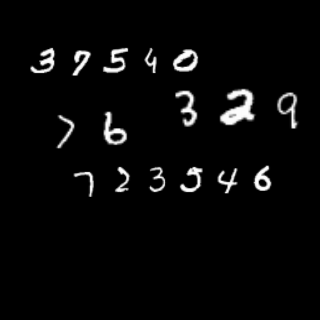 37540
76
329
723546